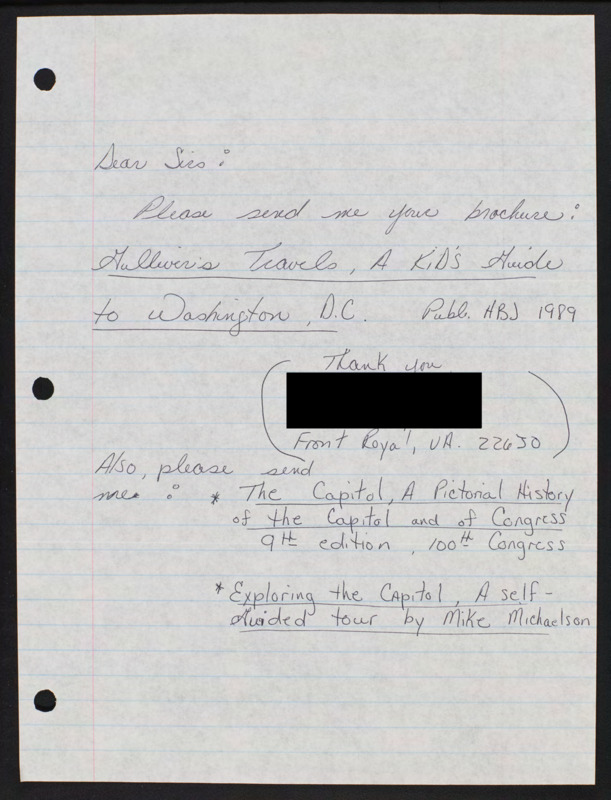 Dear Sirs:
Please send me your brochure:
Gulliver's Travels, A KiD'S Guide
to Washington, D.C. Publ. HBJ 1989
Thank you
Front Royal, VA. 22630
Also, please send
me: * The Capitol, A Pictorial History
of the Capitol and of Congress
9th edition, 100th Congress
* Exploring the Capitol, A self-
Guided tour by Mike Michaelson